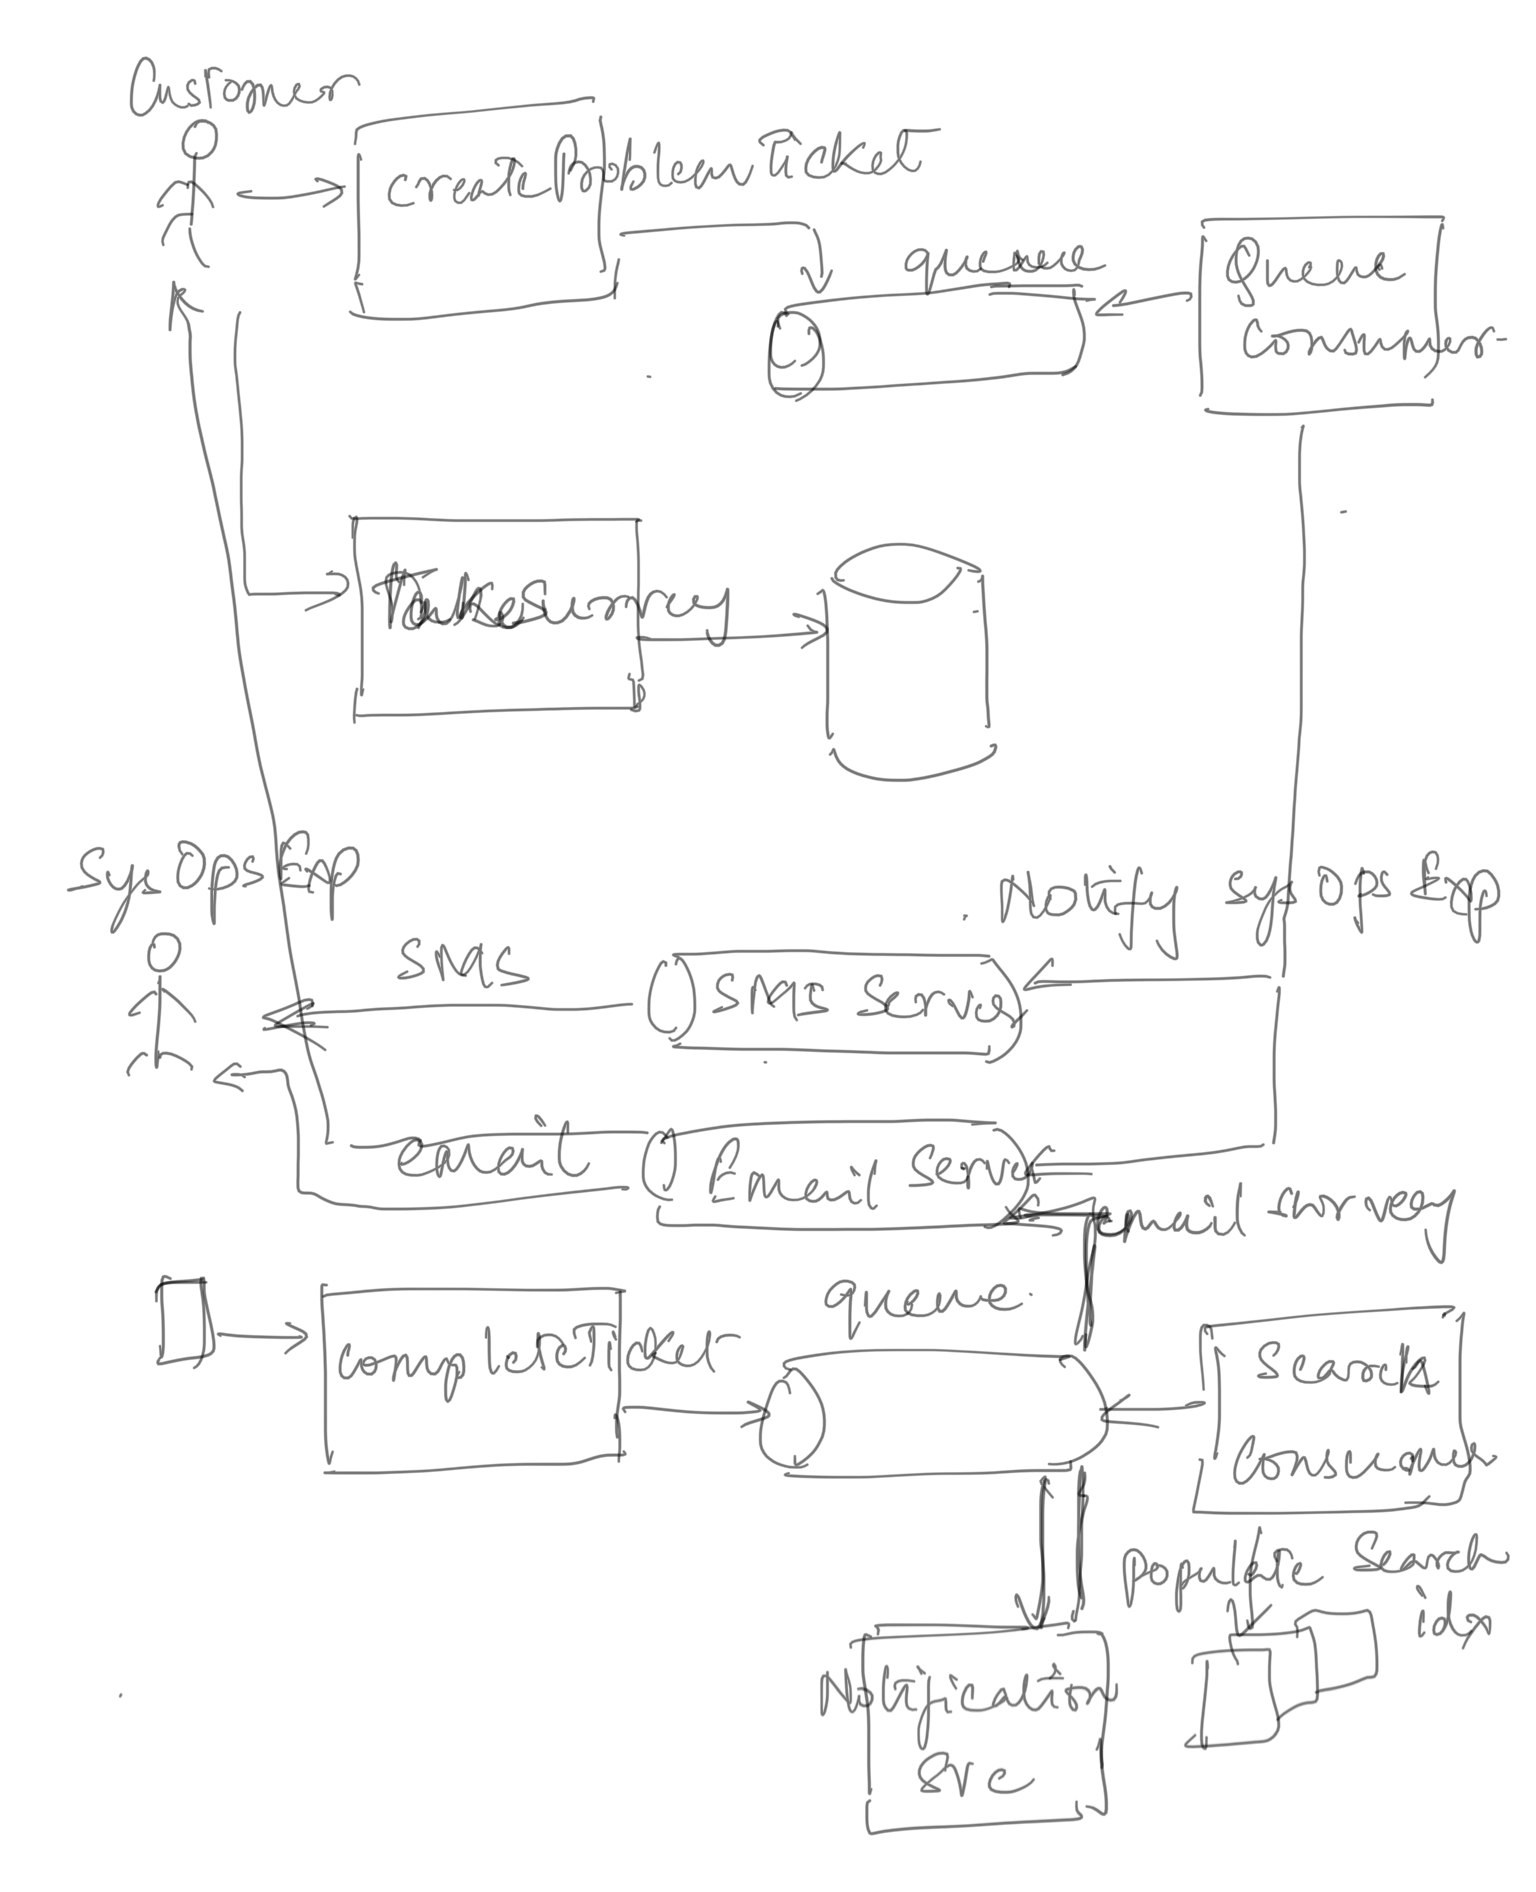 Customer
createProblemTicket
queue
Queue
Consumer
TakeSurvey
Sys Ops Exp
Notify Sys Ops Exp
SMS
SMS Server
email
Email Server
email survey
queue
completeTicket
Search
Consumer
Populate Search
idx
Notification
Svc